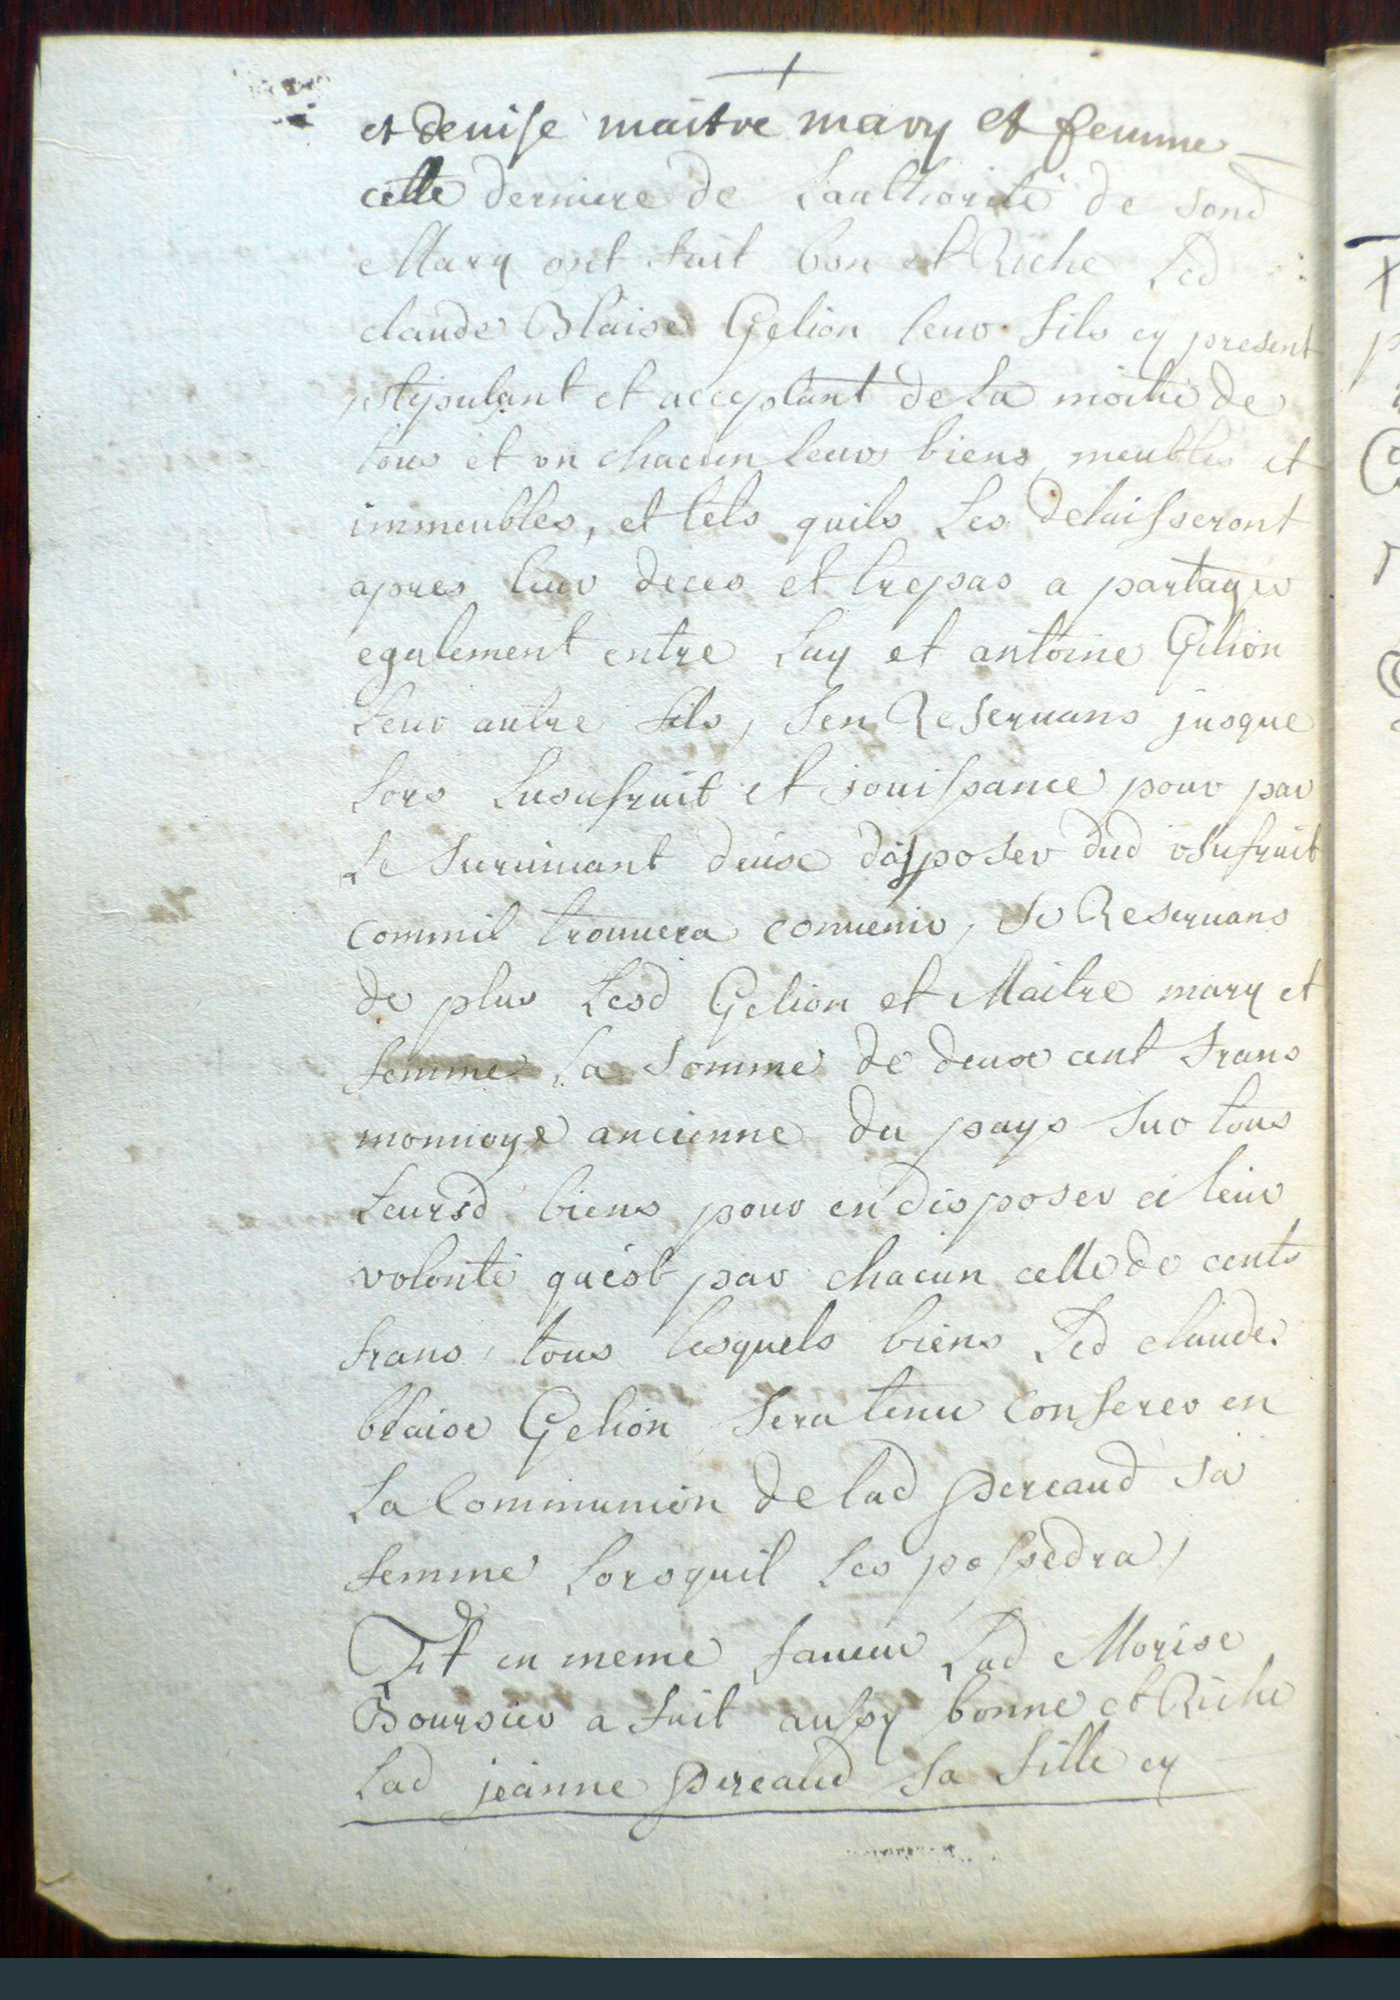 et denise maitre mary et femme
cette derniere de Lauthorité de sond
Mary ont fait bon et Riche Led
claude Blaise Gelion leur fils cy present
stipulant et acceptant de La moitié de
tous et un chacun leurs biens, meubles et
immeubles, et tels quils Les delaisseront
apres leur deces et trepas a partager
egalement entre Luy et antoine Gelion
Leur autre fils, sen Reservans jusque
Lors Lusufruit et jouissance pour par
Le survivant deux disposer dud usufruit
commil trouvera convenir, se Reservans
de plus Lesd Gelion et Maitre mary et
femme La somme de deux cent frans
monnoye ancienne du pays sur tous
Leursd biens pour en disposer a leur
volonté qu'est par chacun celle de cents
frans, tous lesquels biens Led claude
blaise Gelion sera tenu conferer en
La Communion de lad Pereaud sa
femme Lorsquil Les possedra,
Et en meme faveur Lad Morise
Boursier a fait aussy bonne et Riche
Lad jeanne Pereaud sa fille cy